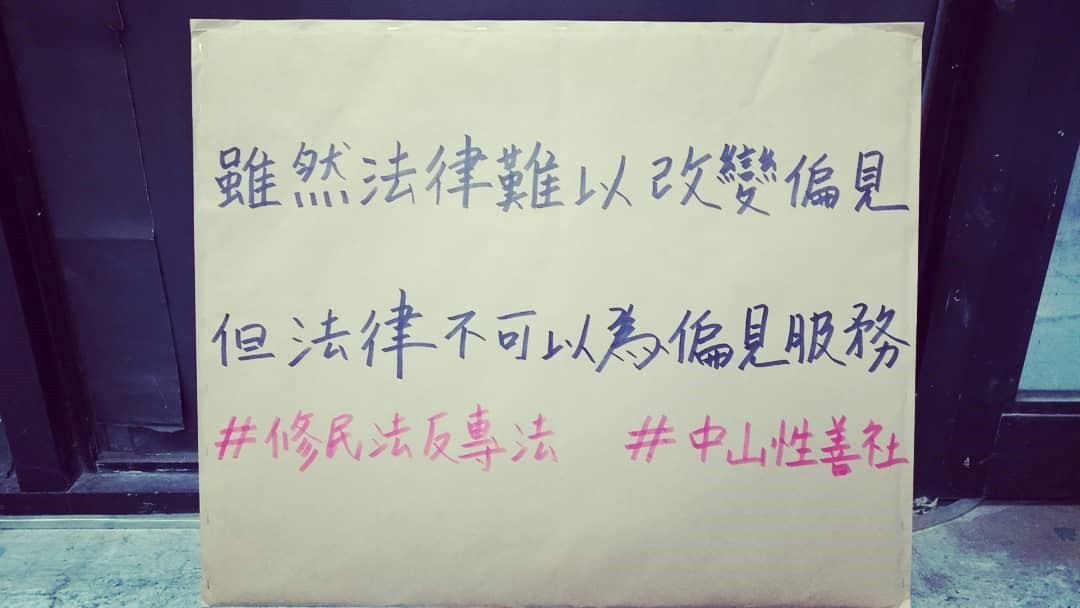 雖然法律難以改變偏見
但法律不可以為偏見服務
#修民法反專法 #中山性善社